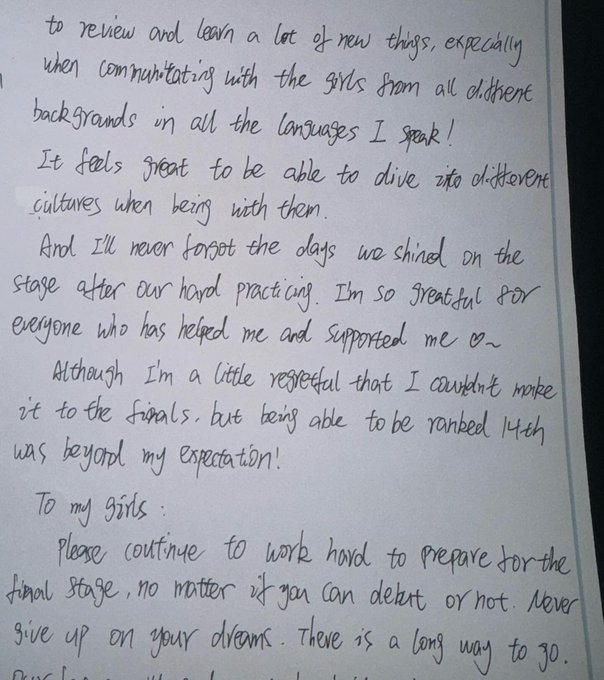 to review and learn a lot of new things, expecially
when communitating with the girls from all diffrent
backgrounds in all the languages I speak!
It feels great to be able to dive into different
cultures when being with them.
And I'll never forgot the days we shined on the
stage after our hard practicing. I'm so greatful for
everyone who has helped me and supported me ♡~
Although I'm a little regretful that I couldn't make
it to the finals, but being able to be ranked 14th
was beyond my expectation!
To my girls :
Please continue to work hard to prepare for the
final stage, no matter if you can debut or not. Never
give up on your dreams. There is a long way to go.